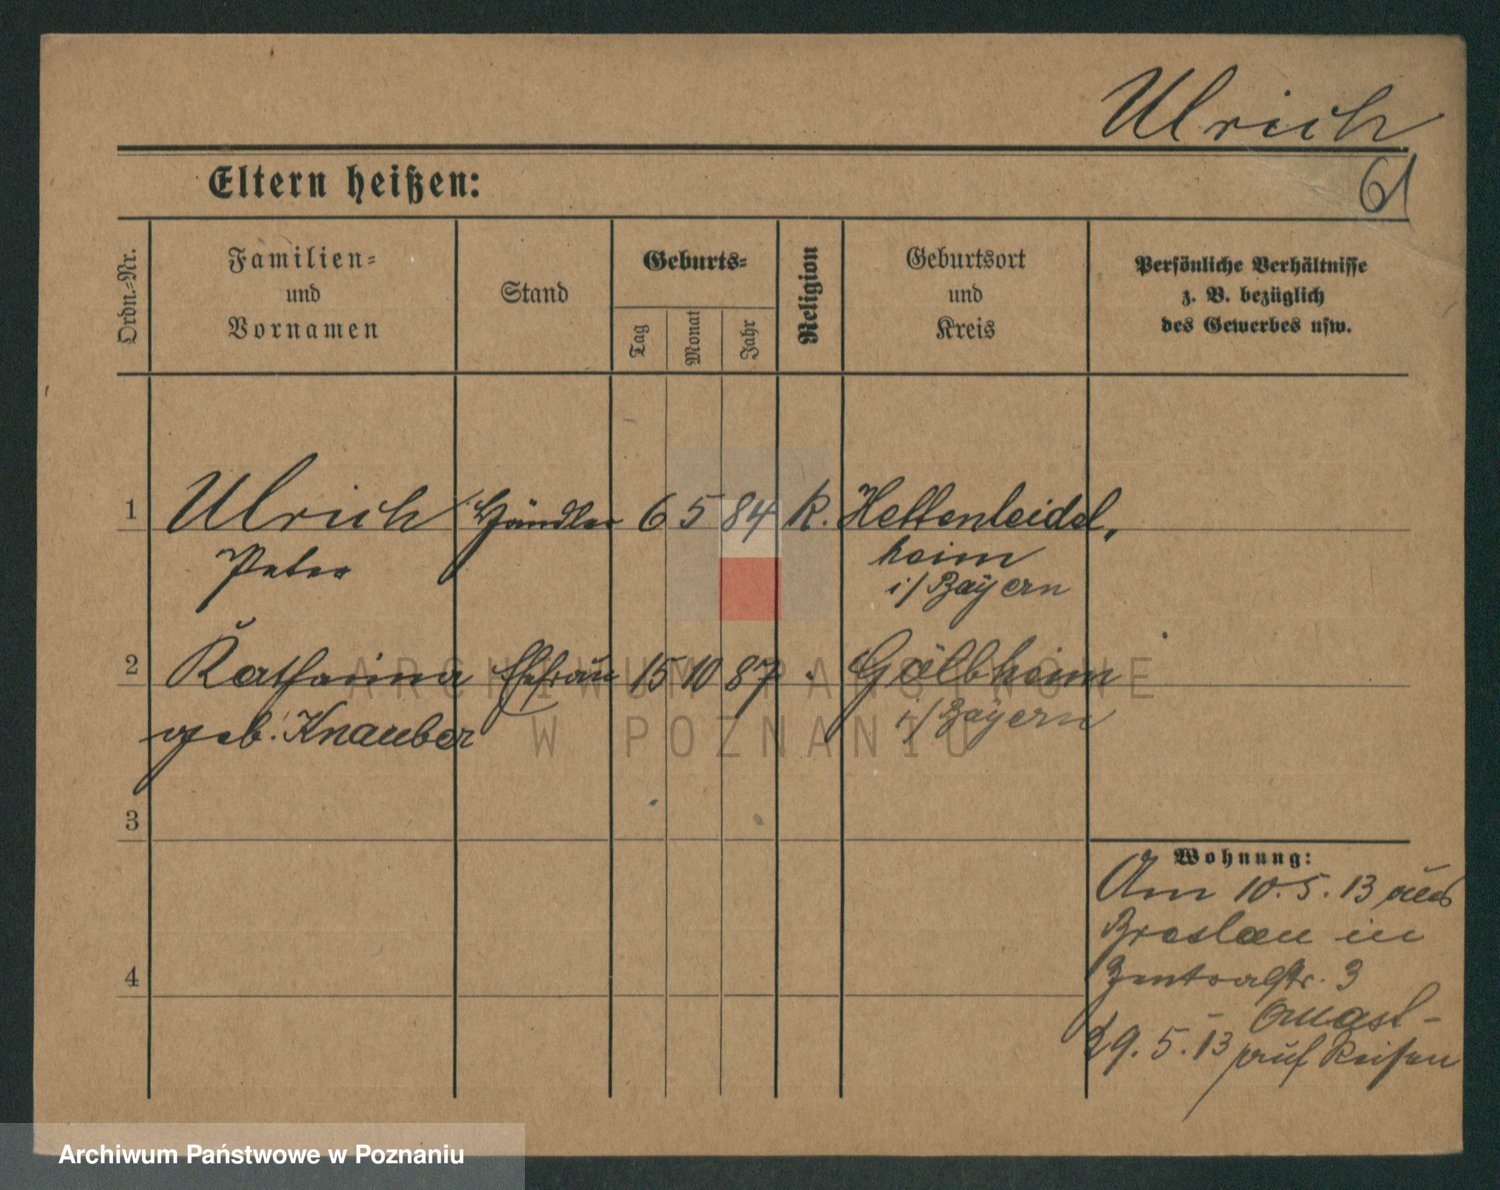 Ulrich
61
Eltern heißen:
Ordn.-Nr.
Familien-
und
Vornamen
Stand
Geburts-
Tag
Monat
Jahr
Religion
Geburtsort
und
Kreis
Persönliche Verhältnisse
z. B. bezüglich
des Gewerbes usw.
1 Ulrich Händler 6 5 84 k. Hettenleidel,
Peter heim
i/Bayern
2 Katharina Ehefrau 15 10 87 Göllheim
geb. Knauber i/Bayern
3
4
Wohnung:
Am 10.5.13 aus
Breslau in
Zentralstr. 3
Quast-
29.5.13 auf Reisen
ARCHIWUM PAŃSTWOWE
W POZNANIU
Archiwum Państwowe w Poznaniu